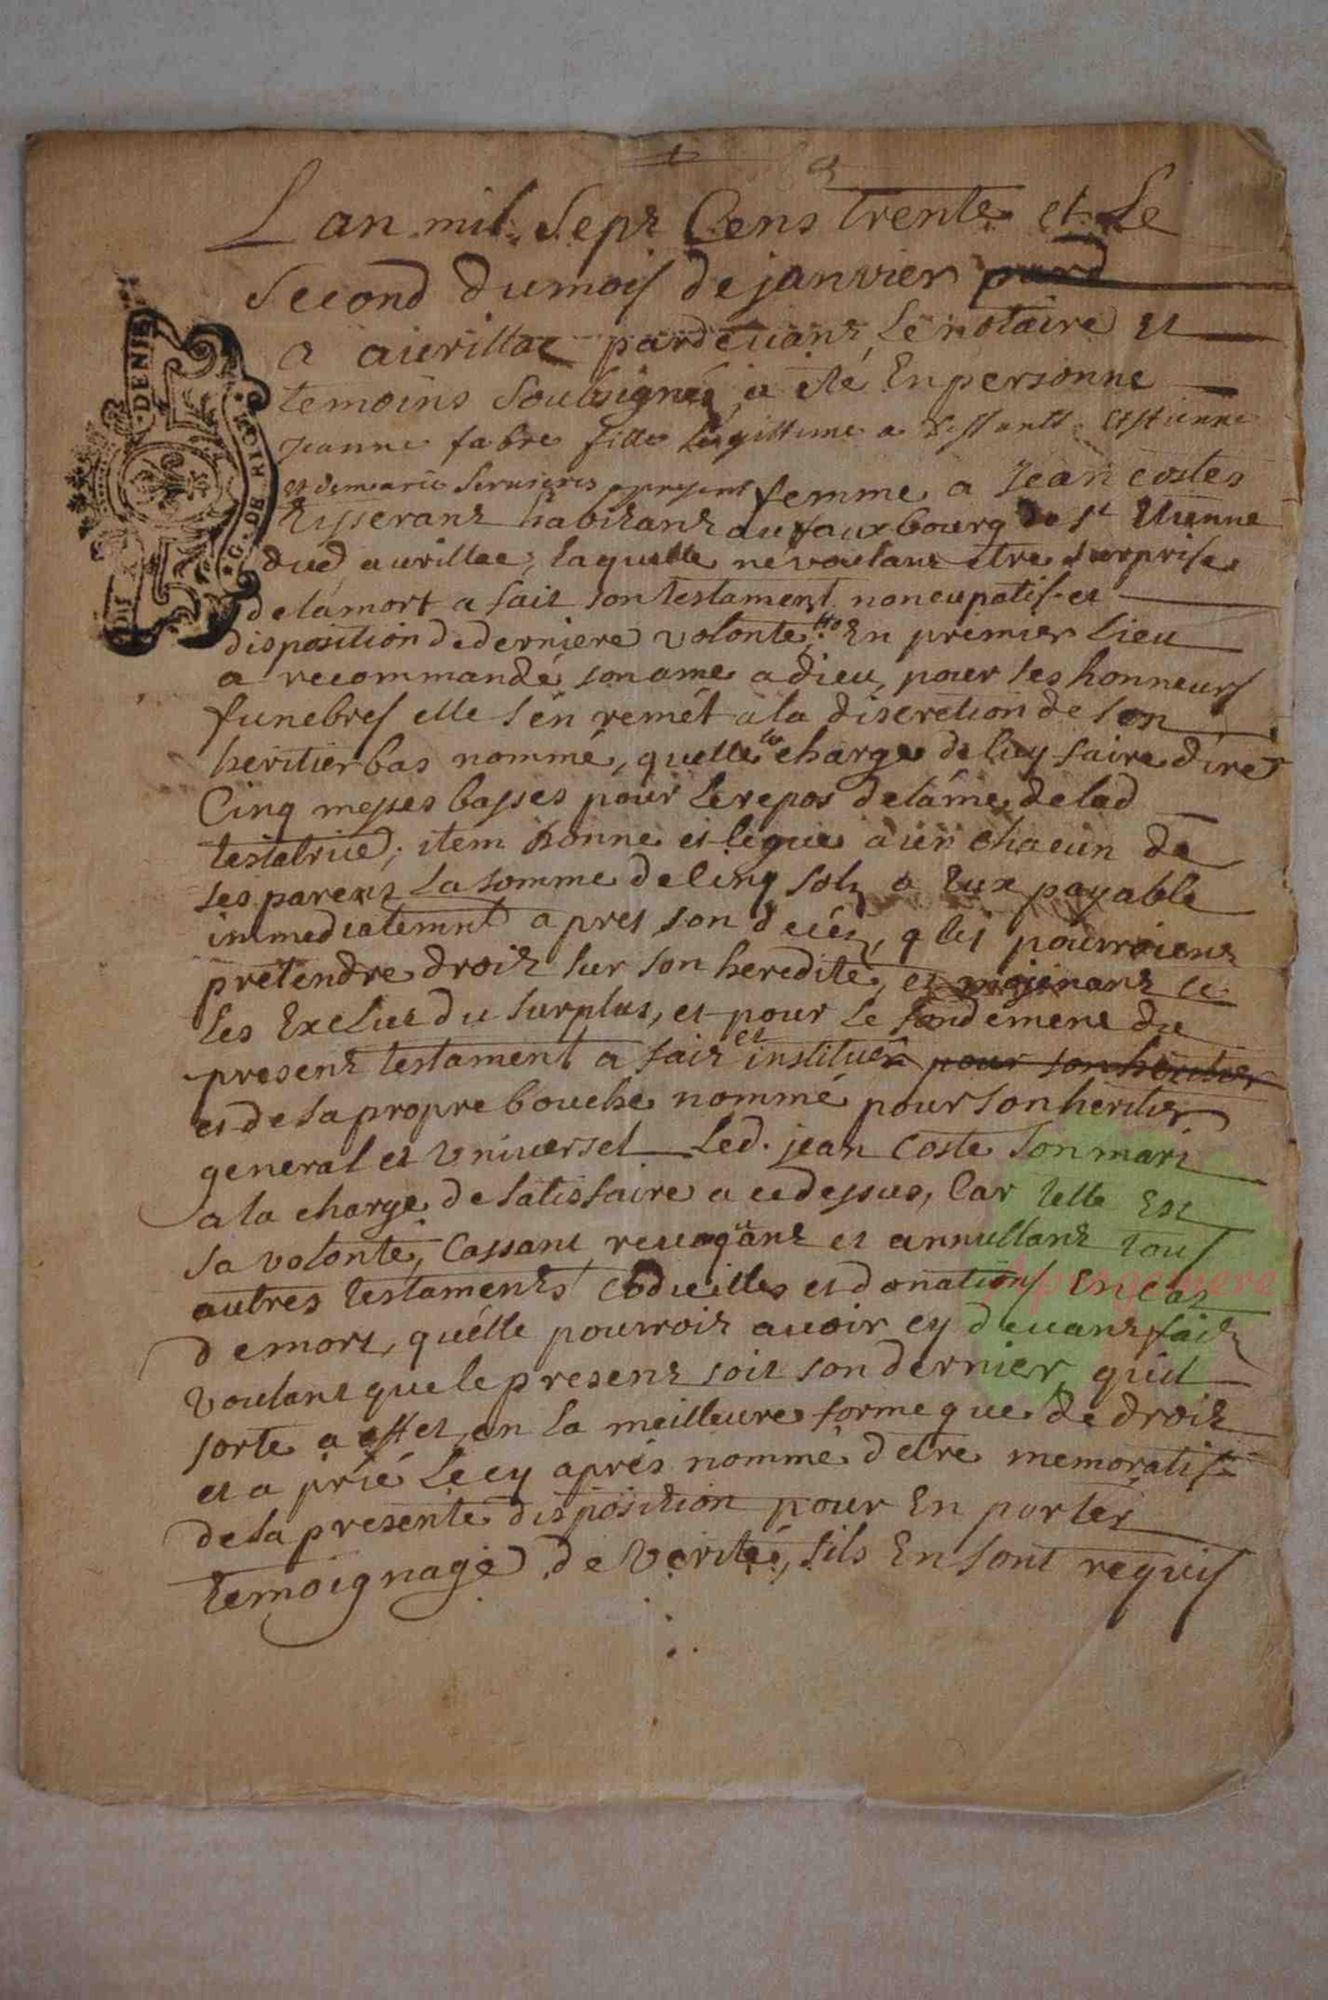 Lan mil Sept Cens trente et Le
Second du mois de janvier pard
a aurillac pardevant Le notaire et
temoins Soubsignés a été En personne
jeanne fabre fille Legittime a deffunts Estienne
et de marie apresent femme a Jean costes
tisserant habitant au faux bourg de St Etienne
dud aurillac, laquelle ne voulant etre surprise
de la mort a fait son testament noncupatif et
disposition de derniere volonté En premier Lieu
a recommandé son ame a dieu, pour ses honneurs
funebres elle s'en remét a la discretion de son
heritier bas nommé, quelle charge de luy faire dire
Cinq messes basses pour le repos de l'âme de lad
testatrice; item donne et legue a un chacun de
ses parens La somme de Cinq sols a Eux payable
immediatemnt apres son decés, qlus pourroient
prétendre droit sur son heredité, et mojenant ce
les Exclut du surplus, et pour Le fondement du
present testament a fait et institué pour son heritier
et de sa propre bouche nommé pour son heritier
general et Universel Led. jean Coste son mari
a la charge de satisfaire a ce dessus, Car telle Est
sa volonté, Cassant revoquant et annullant tous
autres testaments Codicilles et donations En cas
de mort, quélle pourroit avoir cy devant fait
voulant que le present soit son dernier, quil
sorte a effet en la meilleure forme que de droit
et a prié Le cy aprés nommé d etre memoratif
de la presente disposition pour En porter
temoignage de verité, sils En sont requis
DENIE
G. DE RIOM
DI